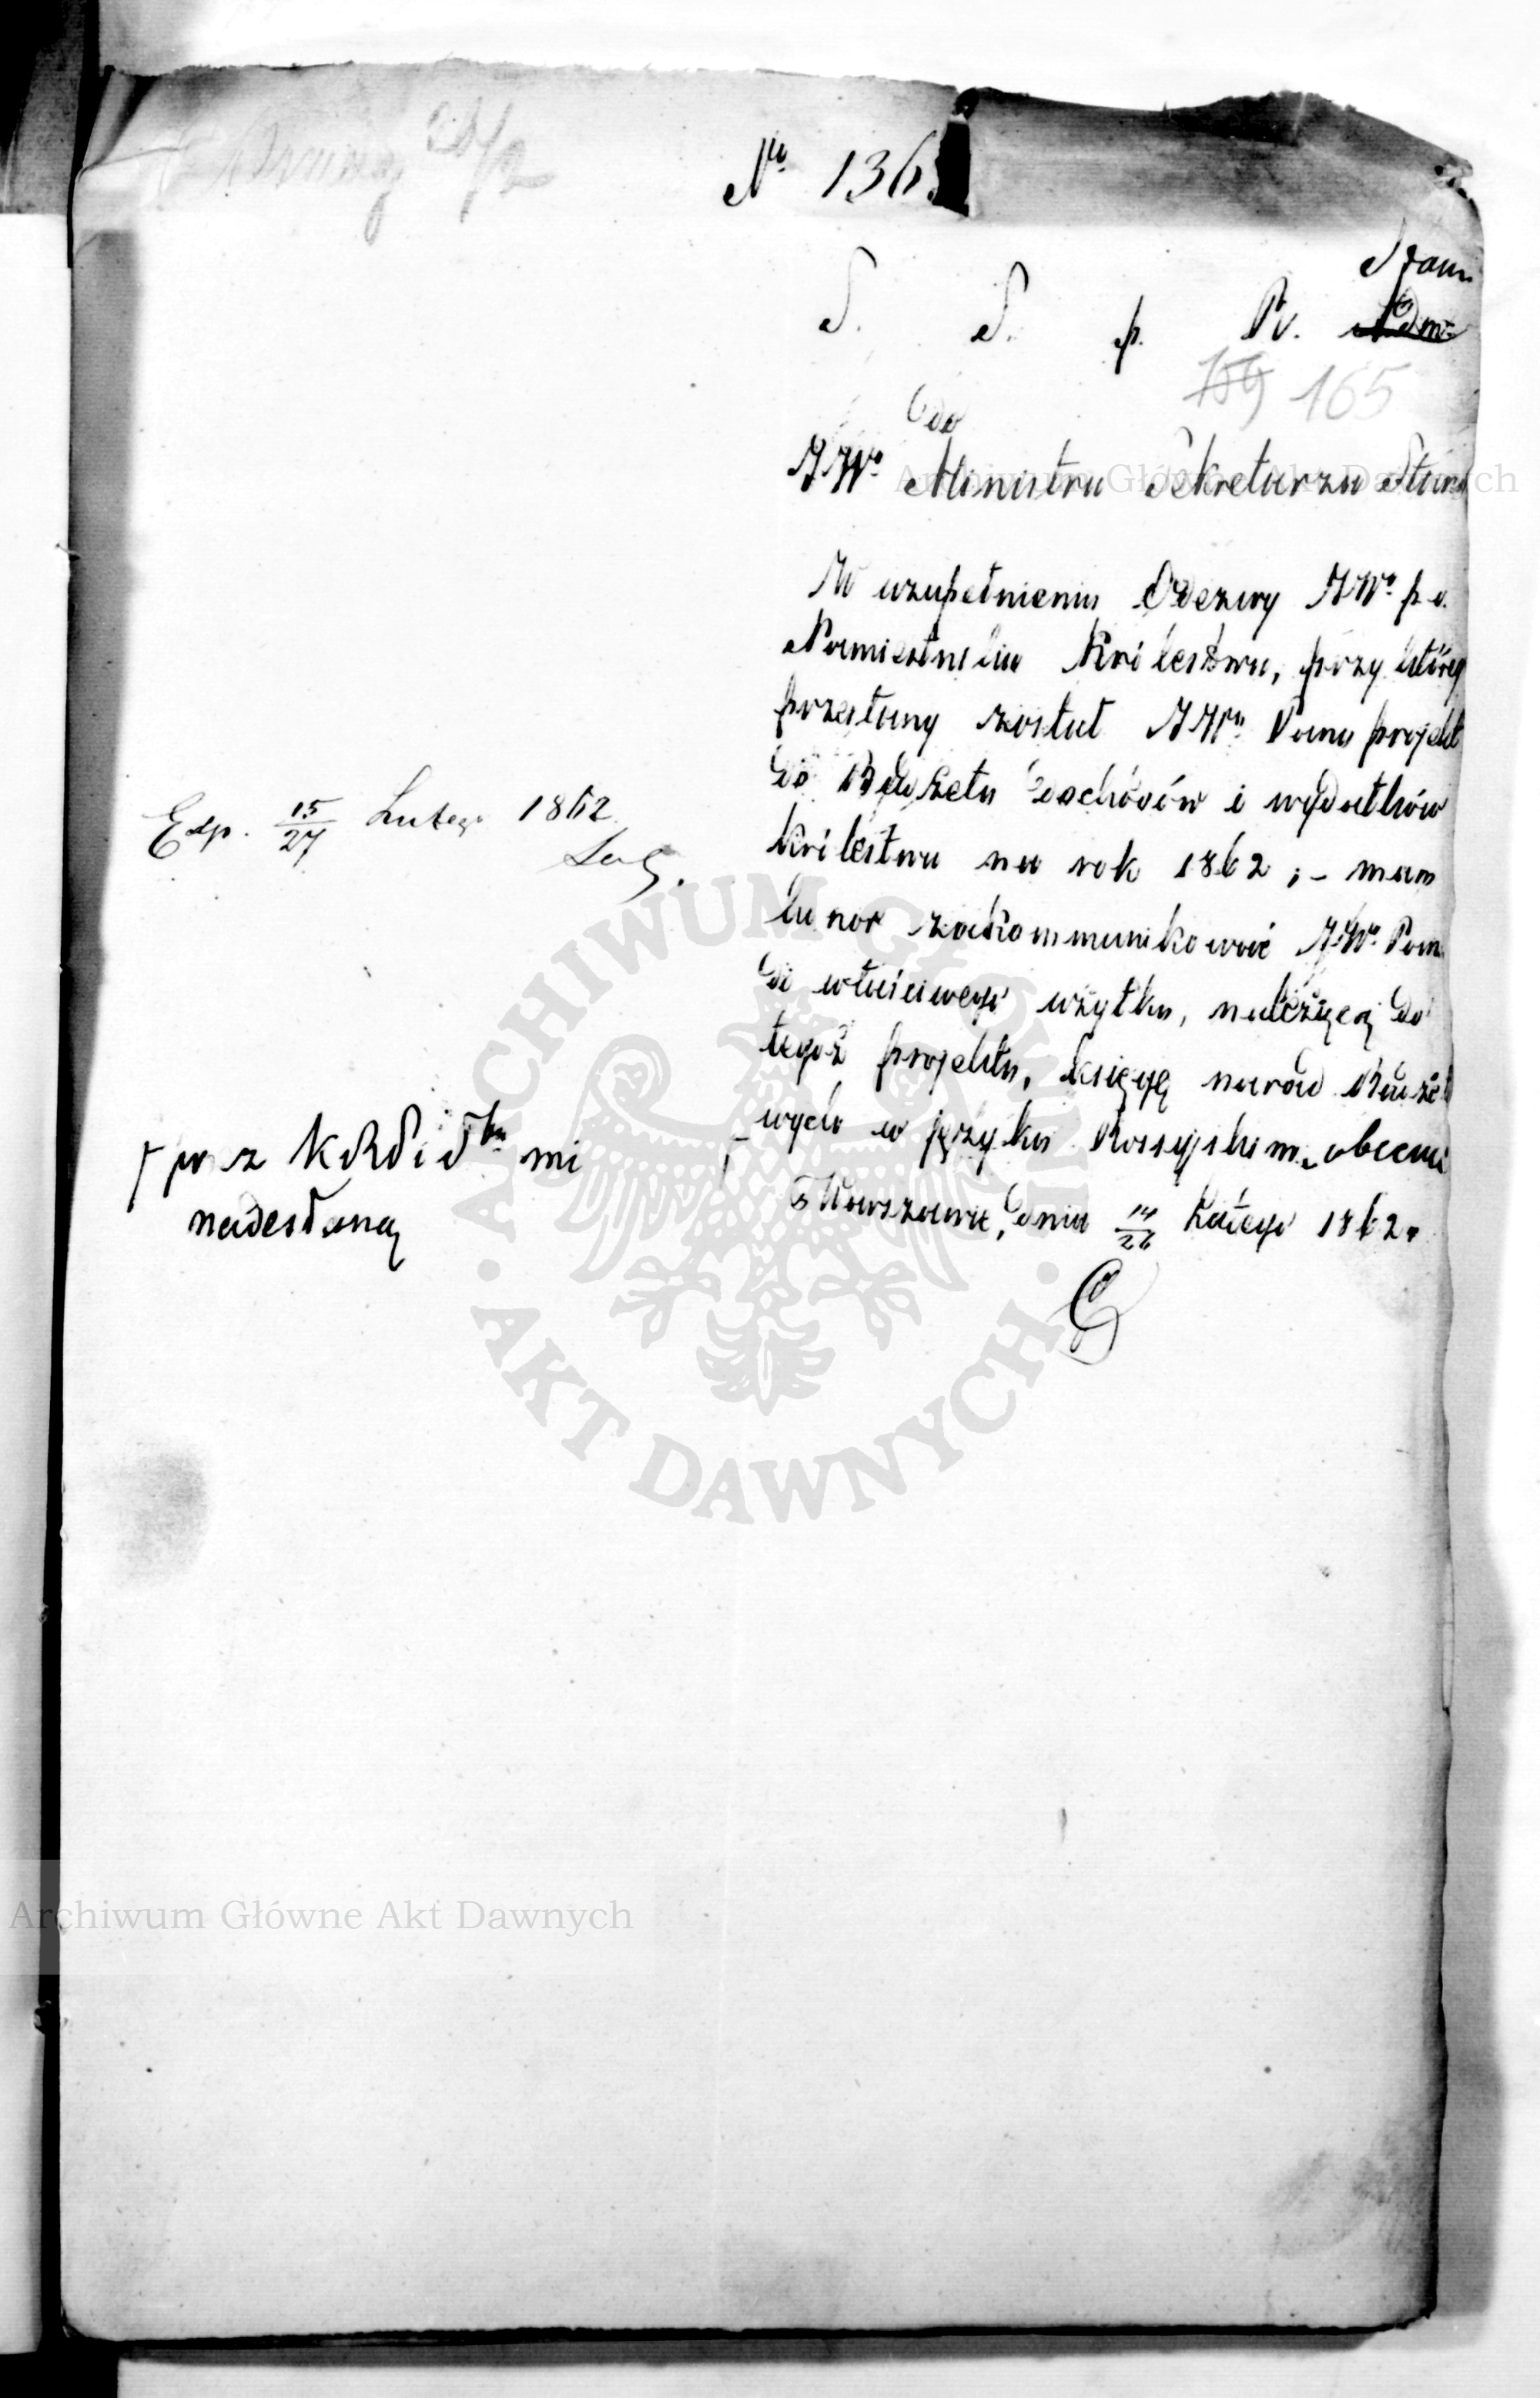 No 136
S. S. p. Pr. Stanu
159 165
do
JWo Ministra Sekretarza Stanu
W uzupełnieniu Odezwy JWo p. o.
Namiestnika Królestwa, przy której
przesłany został JWu Panu projekt
do Budżetu dochodów i wydatków
Królestwa na rok 1862; – mam
honor zakommunikować JWu Panu
do właściwego użytku, należącą do
tegoż projektu, księgę narad Budżeto
wych w języku Rossyjskim, obecnie
Warszawa, dnia 14/26 Lutego 1862.
Exp. 15/27 Lutego 1862
prz z KRPiSbu mi
nadesłaną
Archiwum Główne Akt Dawnych
ARCHIWUM GŁÓWNE
AKT DAWNYCH
Archiwum Główne Akt Dawnych